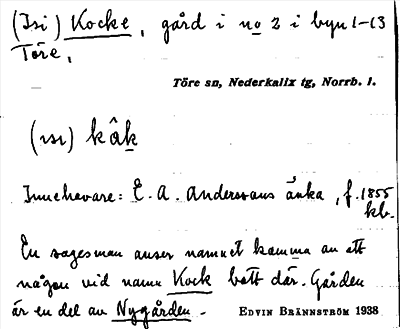 (Isi) Kocke, gård i no 2 i byn 1-13
Töre,
Töre sn, Nederkalix tg, Norrb. l.
(ısı) kâk
Innehavare: E. A. Anderssons änka, f. 1855
kb.
En sagesman anser namnet komma av att
någon vid namn Kock bott där. Gården
är en del av Nygården.
EDVIN BRÄNNSTRÖM 1938